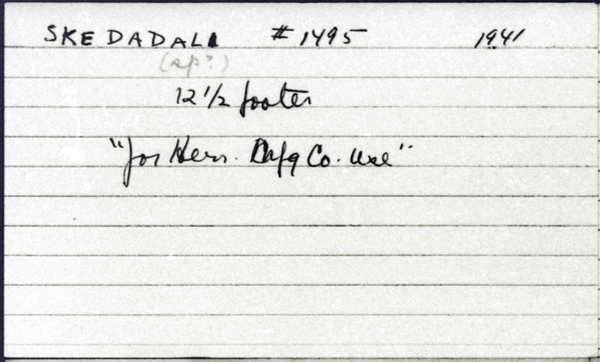 SKEDADAL # 1495 1941
(sp?)
12 1/2 footer
"for Herr. Mfg Co. use"